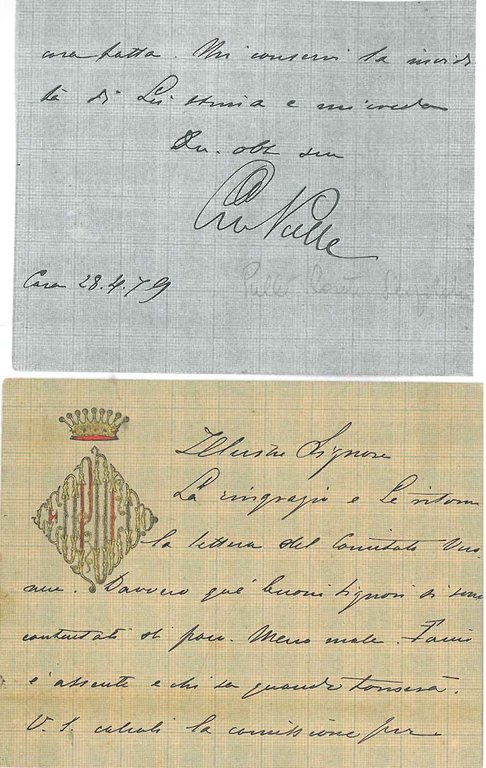 cosa fatta. Mi conservi la
tà di Lei stima e mi creda
Dev. obb. suo
Casa 28.4.79
Illustre Signore
La ringrazio e le ritorno
la lettera del Comitato
Davvero que' buoni signori si sono
contentati di poco. Meno male.
è assente e chi sa quando tornerà.
V. S. calcoli la comissione per